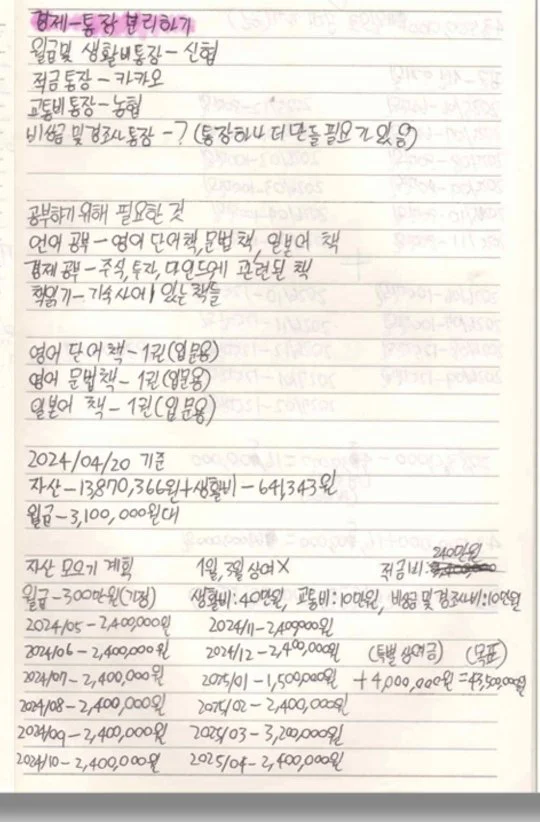 경제-통장 분리하기
월급 및 생활비통장 - 신협
적금통장 - 카카오
교통비통장 - 농협
비상금 및 경조사통장 - ? (통장하나 더 만들 필요가 있음)
공부하기 위해 필요한 것
언어 공부 - 영어 단어책, 문법책, 일본어 책
경제 공부 - 주식, 투자, 마인드에 관련된 책
책읽기 - 기숙사에 있는 책들
영어 단어 책 - 1권 (입문용)
영어 문법책 - 1권 (입문용)
일본어 책 - 1권 (입문용)
2024/04/20 기준
자산 - 13,870,366원 + 생활비 - 641,343원
월급 - 3,100,000원대
240만원
자산 모으기 계획 1월, 3월 상여X 적금비:
월급 - 300만원(가정) 생활비: 40만원, 교통비: 10만원, 비상금 및 경조사비: 10만원
2024/05 - 2,400,000원 2024/11 - 2,400,000원
2024/06 - 2,400,000원 2024/12 - 2,400,000원 (특별 상여금) (목표)
2024/07 - 2,400,000원 2025/01 - 1,500,000원 + 4,000,000원 = 43,500,000원
2024/08 - 2,400,000원 2025/02 - 2,400,000원
2024/09 - 2,400,000원 2025/03 - 3,200,000원
2024/10 - 2,400,000원 2025/04 - 2,400,000원